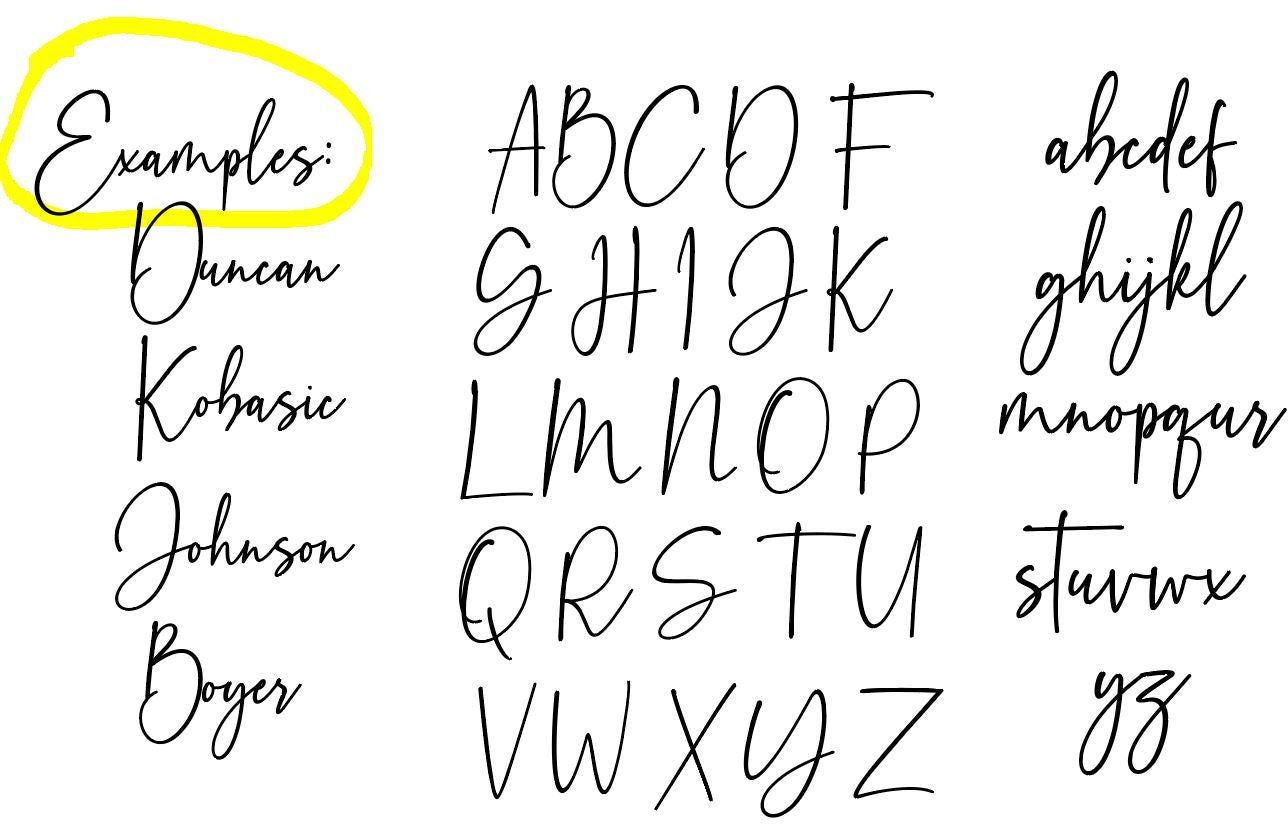 Examples:
Duncan
Kobasic
Johnson
Boyer
A B C D F
G H I J K
L M N O P
Q R S T U
V W X Y Z
abcdef
ghijkl
mnopqur
stuvwx
yz